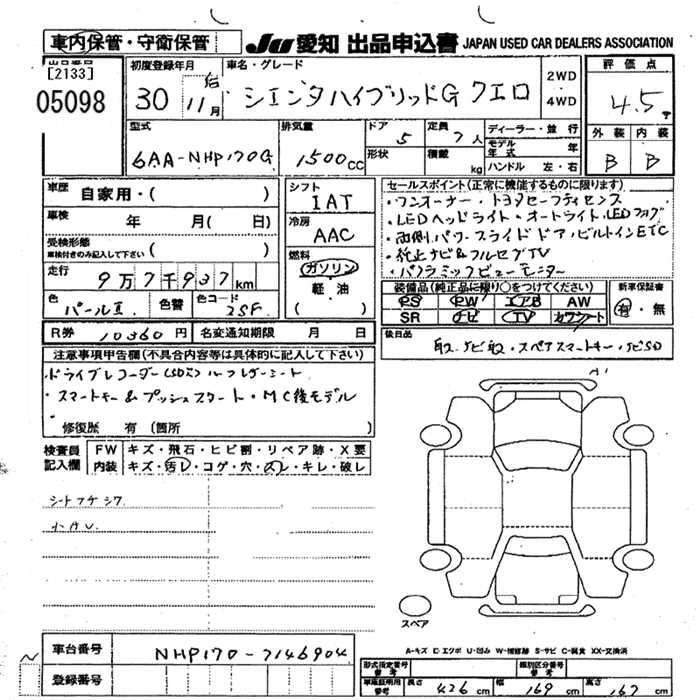 車内保管・守衛保管 JU 愛知 出品申込書 JAPAN USED CAR DEALERS ASSOCIATION
出品番号 [2133] 05098
初度登録年月 30 後 11月
車名・グレード シエンタハイブリッドG クエロ
2WD ・ 4WD
評価点 4.5 点
外装 内装
B B
型式 6AA-NHP170G
排気量 1500cc
ドア 5 形状
定員 7人 積載 kg
ディーラー・並行
モデル年式 年
ハンドル 左・右
車歴 自家用・( )
車検 年 月( 日)
受検形態 車検付きのみ記入して下さい ( )
走行 9万7千937km
色 パールⅡ 色替 色コード 2SF
R券 10360円 名変通知期限 月 日
シフト IAT
冷房 AAC
燃料 ガソリン 軽・油 ( )
セールスポイント(正常に機能するものに限ります)
・ワンオーナー・トヨタセーフティセンス
・LEDヘッドライト・オートライト・LEDフォグ
・両側パワースライドドア・ビルトインETC
・純正ナビ&フルセグTV
・パノラミックビューモニター
装備品(純正品に限り○をつけてください)
PS PW エアB AW
SR ナビ TV カワシート
新車保証書 有・無
後日品
取・ナビ取・スペアスマートキー・ナビSD
注意事項申告欄(不具合内容等は具体的に記入して下さい)
・ドライブレコーダー(SD欠)ハーフレザーシート
・スマートキー&プッシュスタート・MC後モデル
修復歴 有(箇所
検査員記入欄
FW キズ・飛石・ヒビ割・リペア跡・X要
内装 キズ・汚レ・コゲ・穴・スレ・キレ・破レ
シートフチシワ
小A U
スペア
A-キズ E-エクボ U-凹み W-補修跡 S-サビ C-腐食 XX-交換済
車台番号 NHP170-7146904
登録番号
型式指定番号 参考 類別区分番号 参考
車庫証明用 参考 長さ 426cm 幅 169cm 高さ 167cm